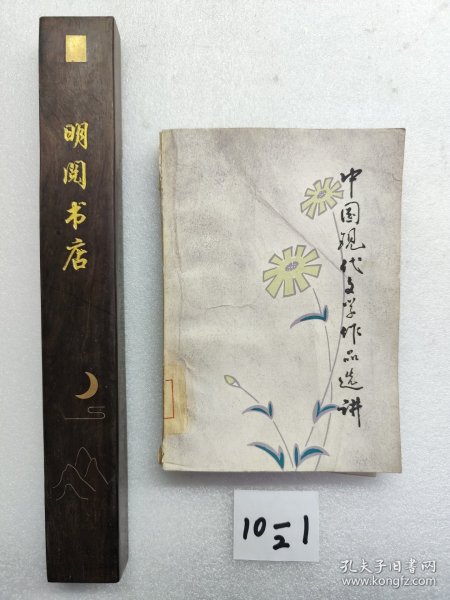 明阅书店
中国现代文学作品选讲
10 2 1
孔夫子旧书网
www.kongfz.com